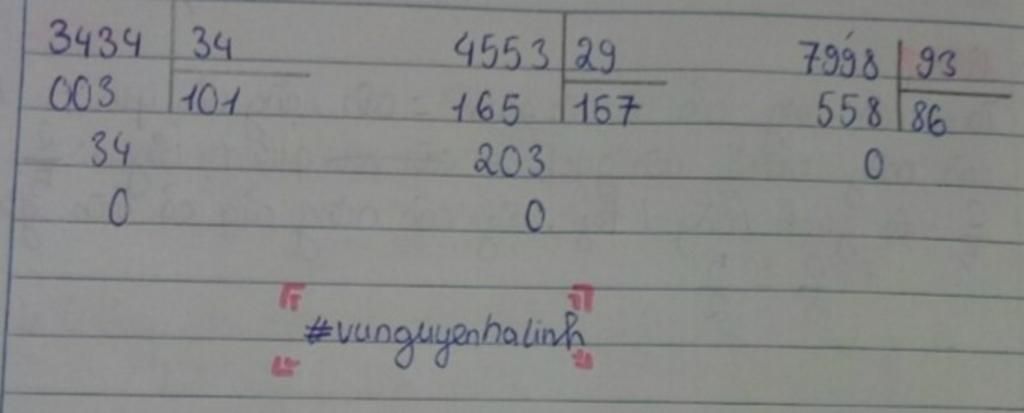 3434 34 4553 29 7998 93
003 101 165 157 558 86
34 203 0
0 0
#vunguyenhalinh